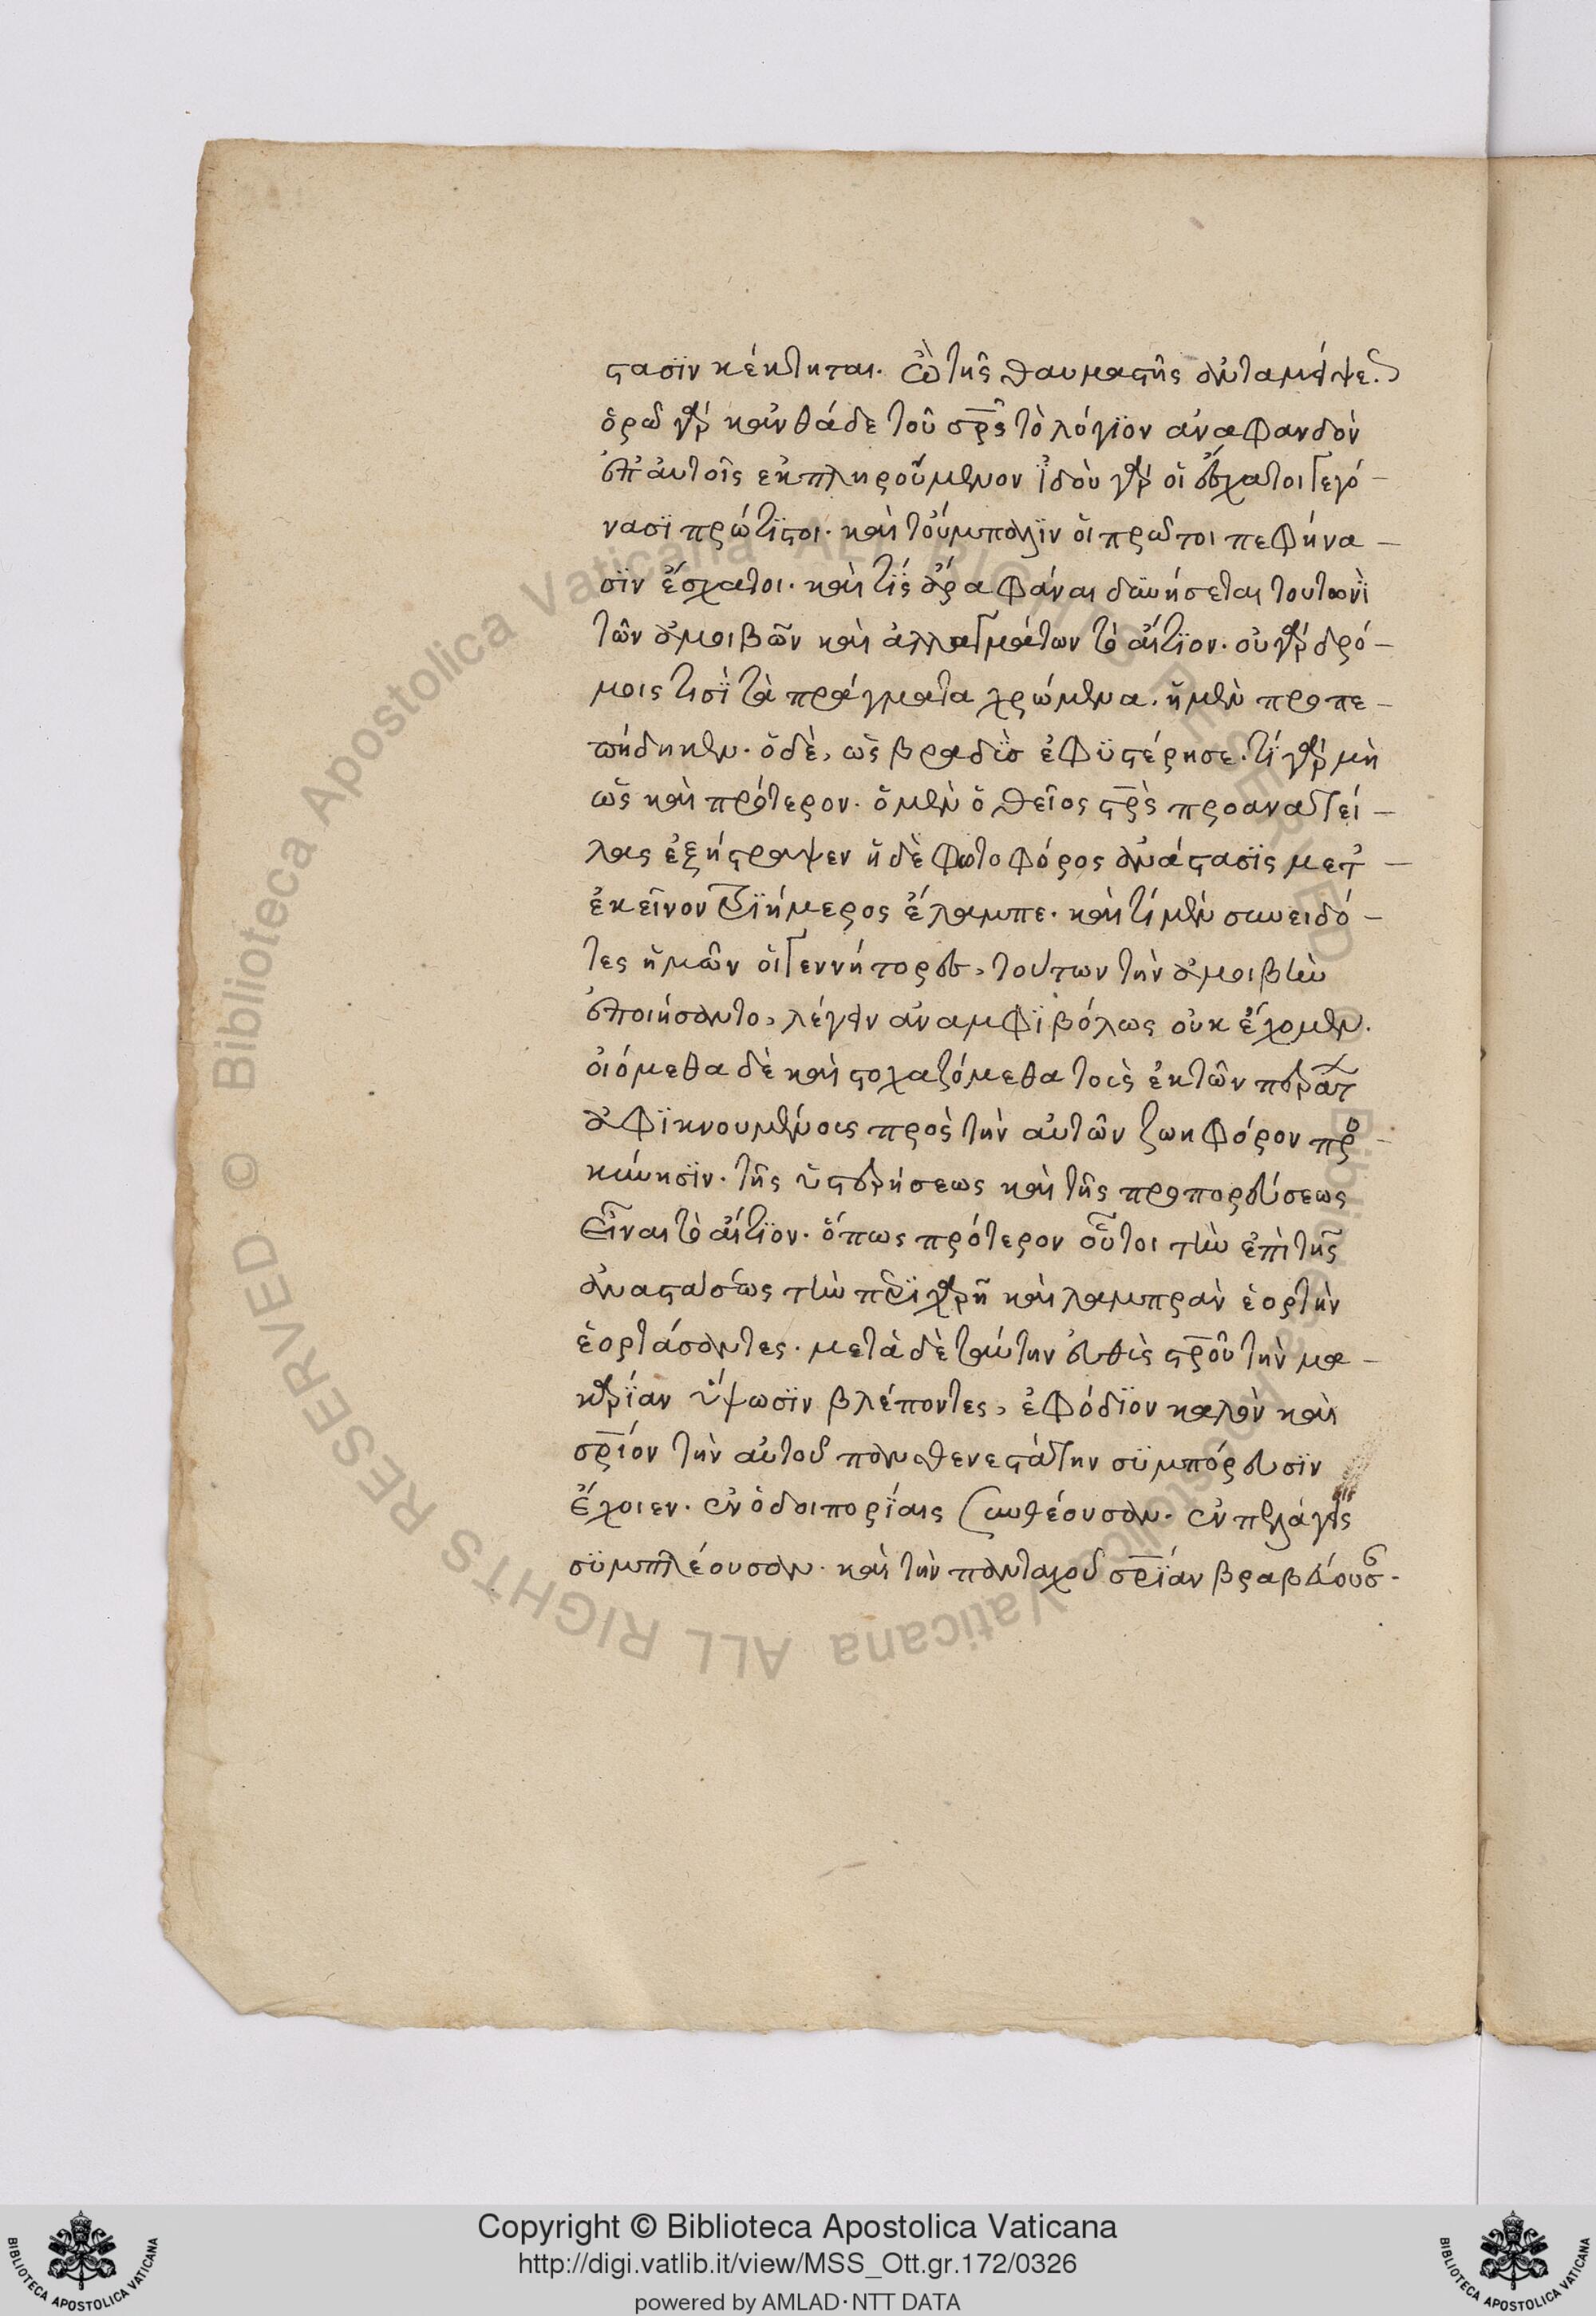 στασϊν κέκτηται. ὢ τῆς θαυμαστῆς ἀνταμείψε
ὁρῶ γὰρ κἀνθάδε τοῦ σρ̅ς τὸ λόγϊον ἀναφανδὸν
ἐπ' ἀυτοῖς ἐκπληρούμενον ἰδοὺ γὰρ οἱ ἔσχατοι γεγό-
νασϊ πρώτϊστοι. καὶ τοὔμπαλϊν ὁι πρῶτοι πεφήνα-
σϊν ἔσχατοι. καὶ τίς ἄρα φάναι δϋνήσεται τουτωνῒ
τῶν ἀμοιβῶν καὶ ἀλλαγμάτων τὸ αἴτϊον. οὐ γὰρ δρό-
μοις τισῒ τὰ πράγματα χρώμενα. ἡ μὲν προπε-
πήδηκεν. ὁ δὲ, ὡς βραδῢς ἐφϋστέρησε. τί γὰρ μὴ
ὡς καὶ πρότερον. ὁ μὲν ὁ θεῖος στρ̅ς προανατεί-
λας ἐξήστραψεν ἡ δὲ φωτοφόρος ἀνάστασϊς μετ'-
ἐκεῖνον τρϊήμερος ἔλαμπε. καὶ τί μὲν συνειδό-
τες ἡμῶν ὁι γεννήτορες, τούτων τὴν ἀμοιβὴν
ἐποιήσαντο, λέγειν ἀναμφϊβόλως οὐκ ἔχομεν.
οἰόμεθα δὲ καὶ στοχαζόμεθα τοῖς ἐκ τῶν περάτ
ἀφϊκνουμένοις πρὸς τὴν αὐτῶν ζωηφόρον προ-
κύνησϊν. τῆς ὑστερήσεως καὶ τῆς προπορεύσεως
εἶναι τὸ αἴτϊον. ὅπως πρότερον οὗτοι τὴν ἐπὶ τῆς
ἀναστάσεως τὴν πρϊχαρῆ καὶ λαμπρὰν ἑορτὴν
ἑορτάσαντες. μετὰ δὲ ταύτην εὐθὺς στρ̅οῦ τὴν μα-
καρΐαν ὕψωσϊν βλέποντες, ἐφόδϊον καλὸν καὶ
σρ̅ίον τὴν αὐτοῦ πανσθενεστάτην σϋμπόρευσϊν
ἔχοιεν. ἐν ὁδοιπορίαις συνθέουσαν. ἐν πελάγεσι
σϋμπλέουσαν. καὶ τὴν πανταχοῦ σρ̅ίαν βραβεύουσ.
Copyright © Biblioteca Apostolica Vaticana
http://digi.vatlib.it/view/MSS_Ott.gr.172/0326
powered by AMLAD·NTT DATA